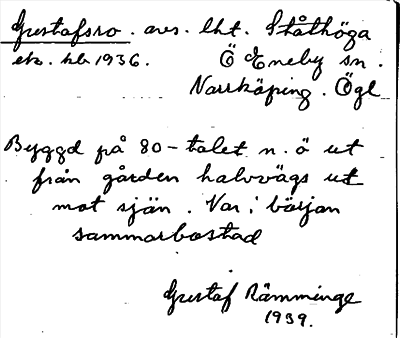 Gustafsro. avs. lht. Ståthöga
ek. kb 1936. Ö Eneby sn.
Norrköping. Ögl
Byggd på 80-talet n.ö ut
från gården halvvägs ut
mot sjön. Var i början
sommarbostad
Gustaf Rämminge
1939.